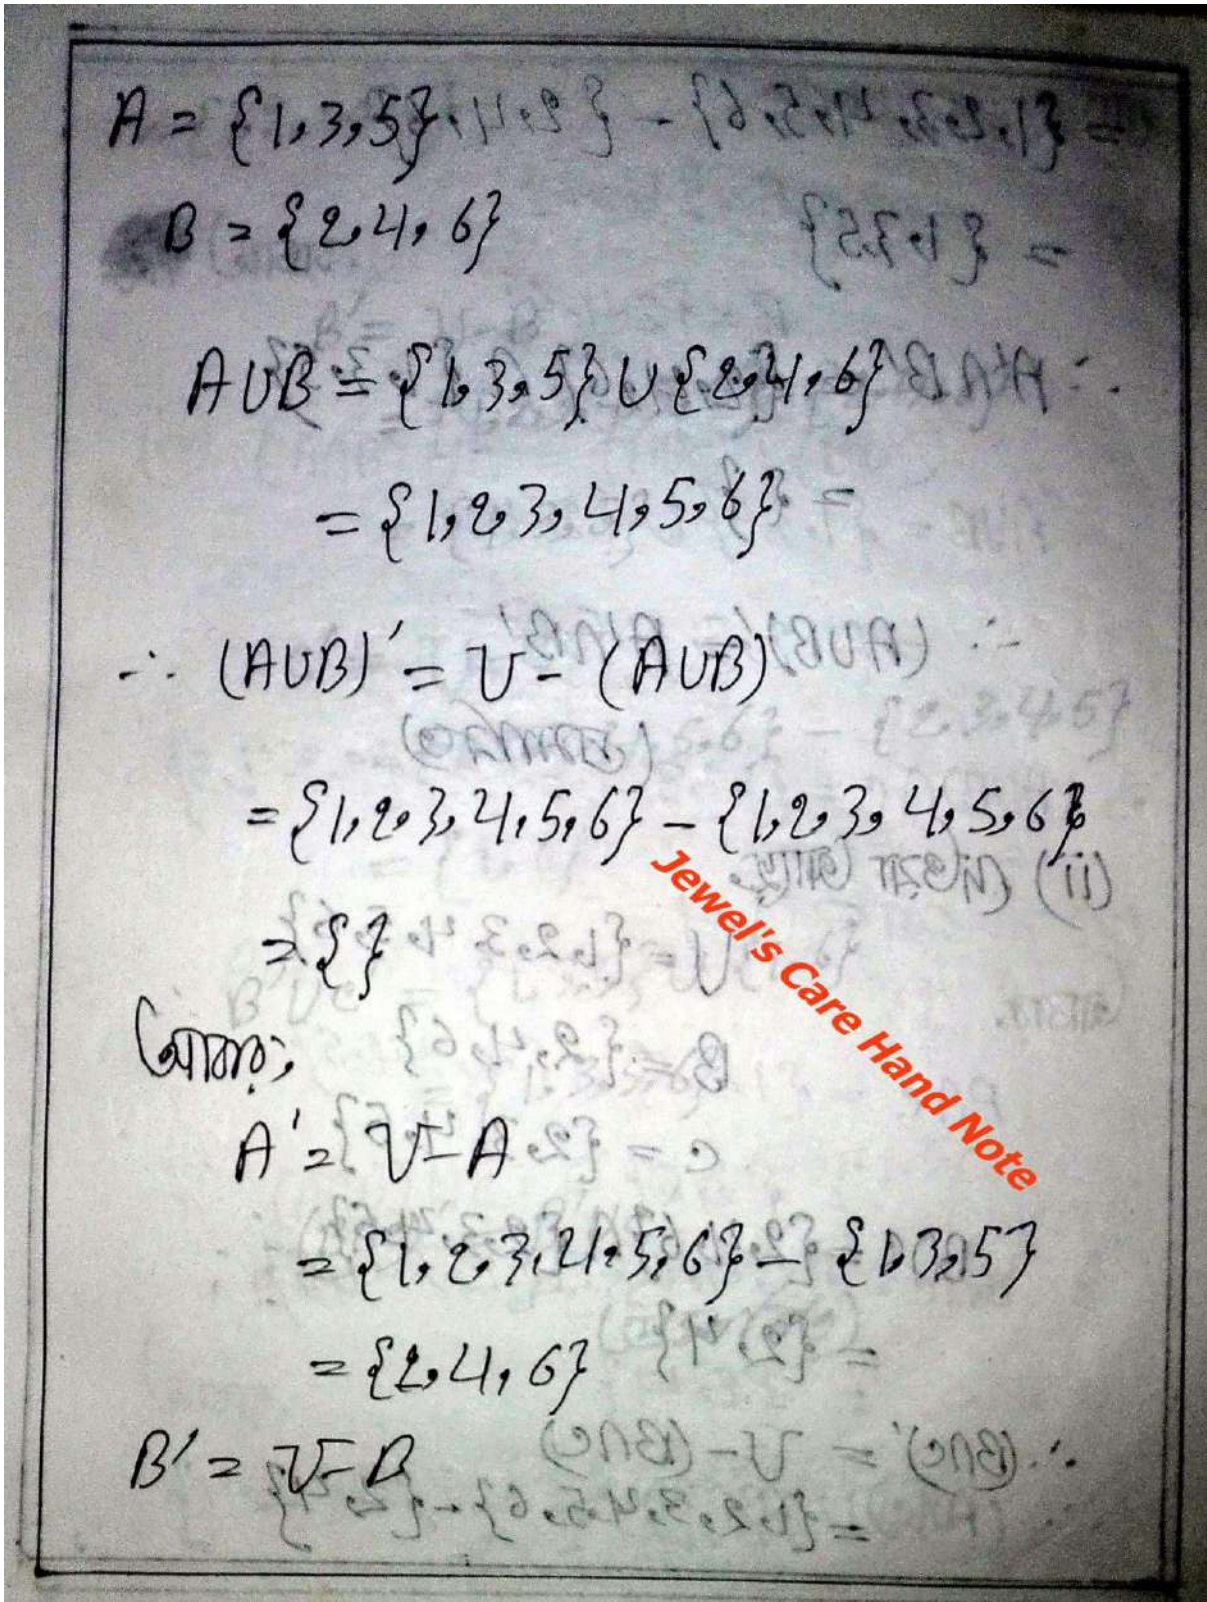 A = {1,3,5}
B = {2,4,6}
A∪B = {1,3,5} ∪ {2,4,6}
= {1,2,3,4,5,6}
∴ (A∪B)' = U - (A∪B)
= {1,2,3,4,5,6} - {1,2,3,4,5,6}
= { }
আবার,
A' = U - A
= {1,2,3,4,5,6} - {1,3,5}
= {2,4,6}
B' = U - B
Jewel's Care Hand Note